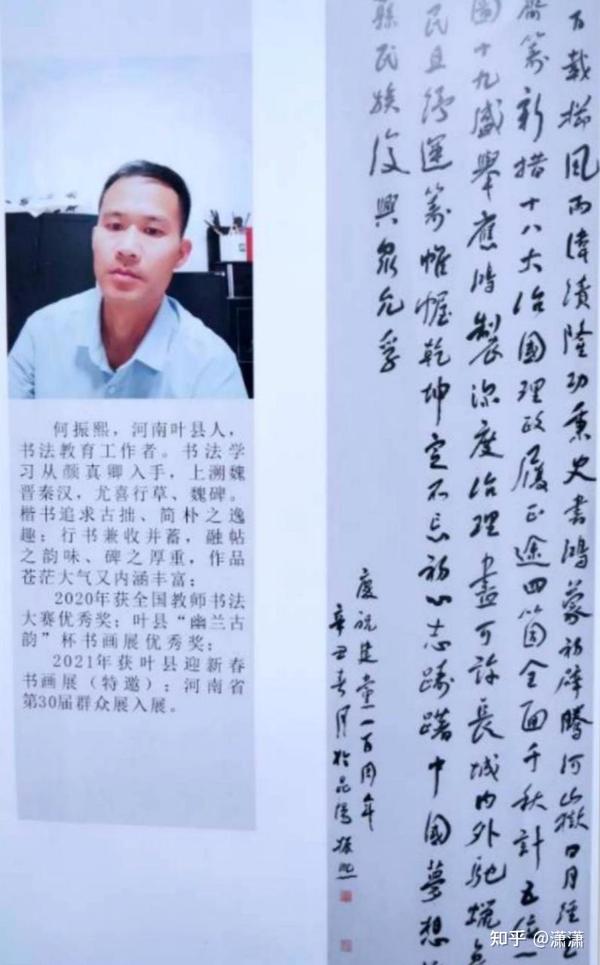 何振熙，河南叶县人，
书法教育工作者。书法学
习从颜真卿入手，上溯魏
晋秦汉，尤喜行草、魏碑。
楷书追求古拙、简朴之逸
趣；行书兼收并蓄，融帖
之韵味、碑之厚重，作品
苍茫大气又内涵丰富；
2020年获全国教师书法
大赛优秀奖；叶县“幽兰古
韵”杯书画展优秀奖；
2021年获叶县迎新春
书画展（特邀）；河南省
第30届群众展入展。
載櫛風雨偉績隆功秉史書鴻蒙初辟騰河山嶽日月經
籌新措十八大治國理政履正途四個全面千秋計五位一
圖十九盛舉應時製深度治理盡可許長城内外馳
民且待運籌帷幄乾坤定不忘初心志踌躇中國夢想
民族復興眾允孚
慶祝建黨一百周年
辛丑春月於昆陽振熙
知乎 @潇潇